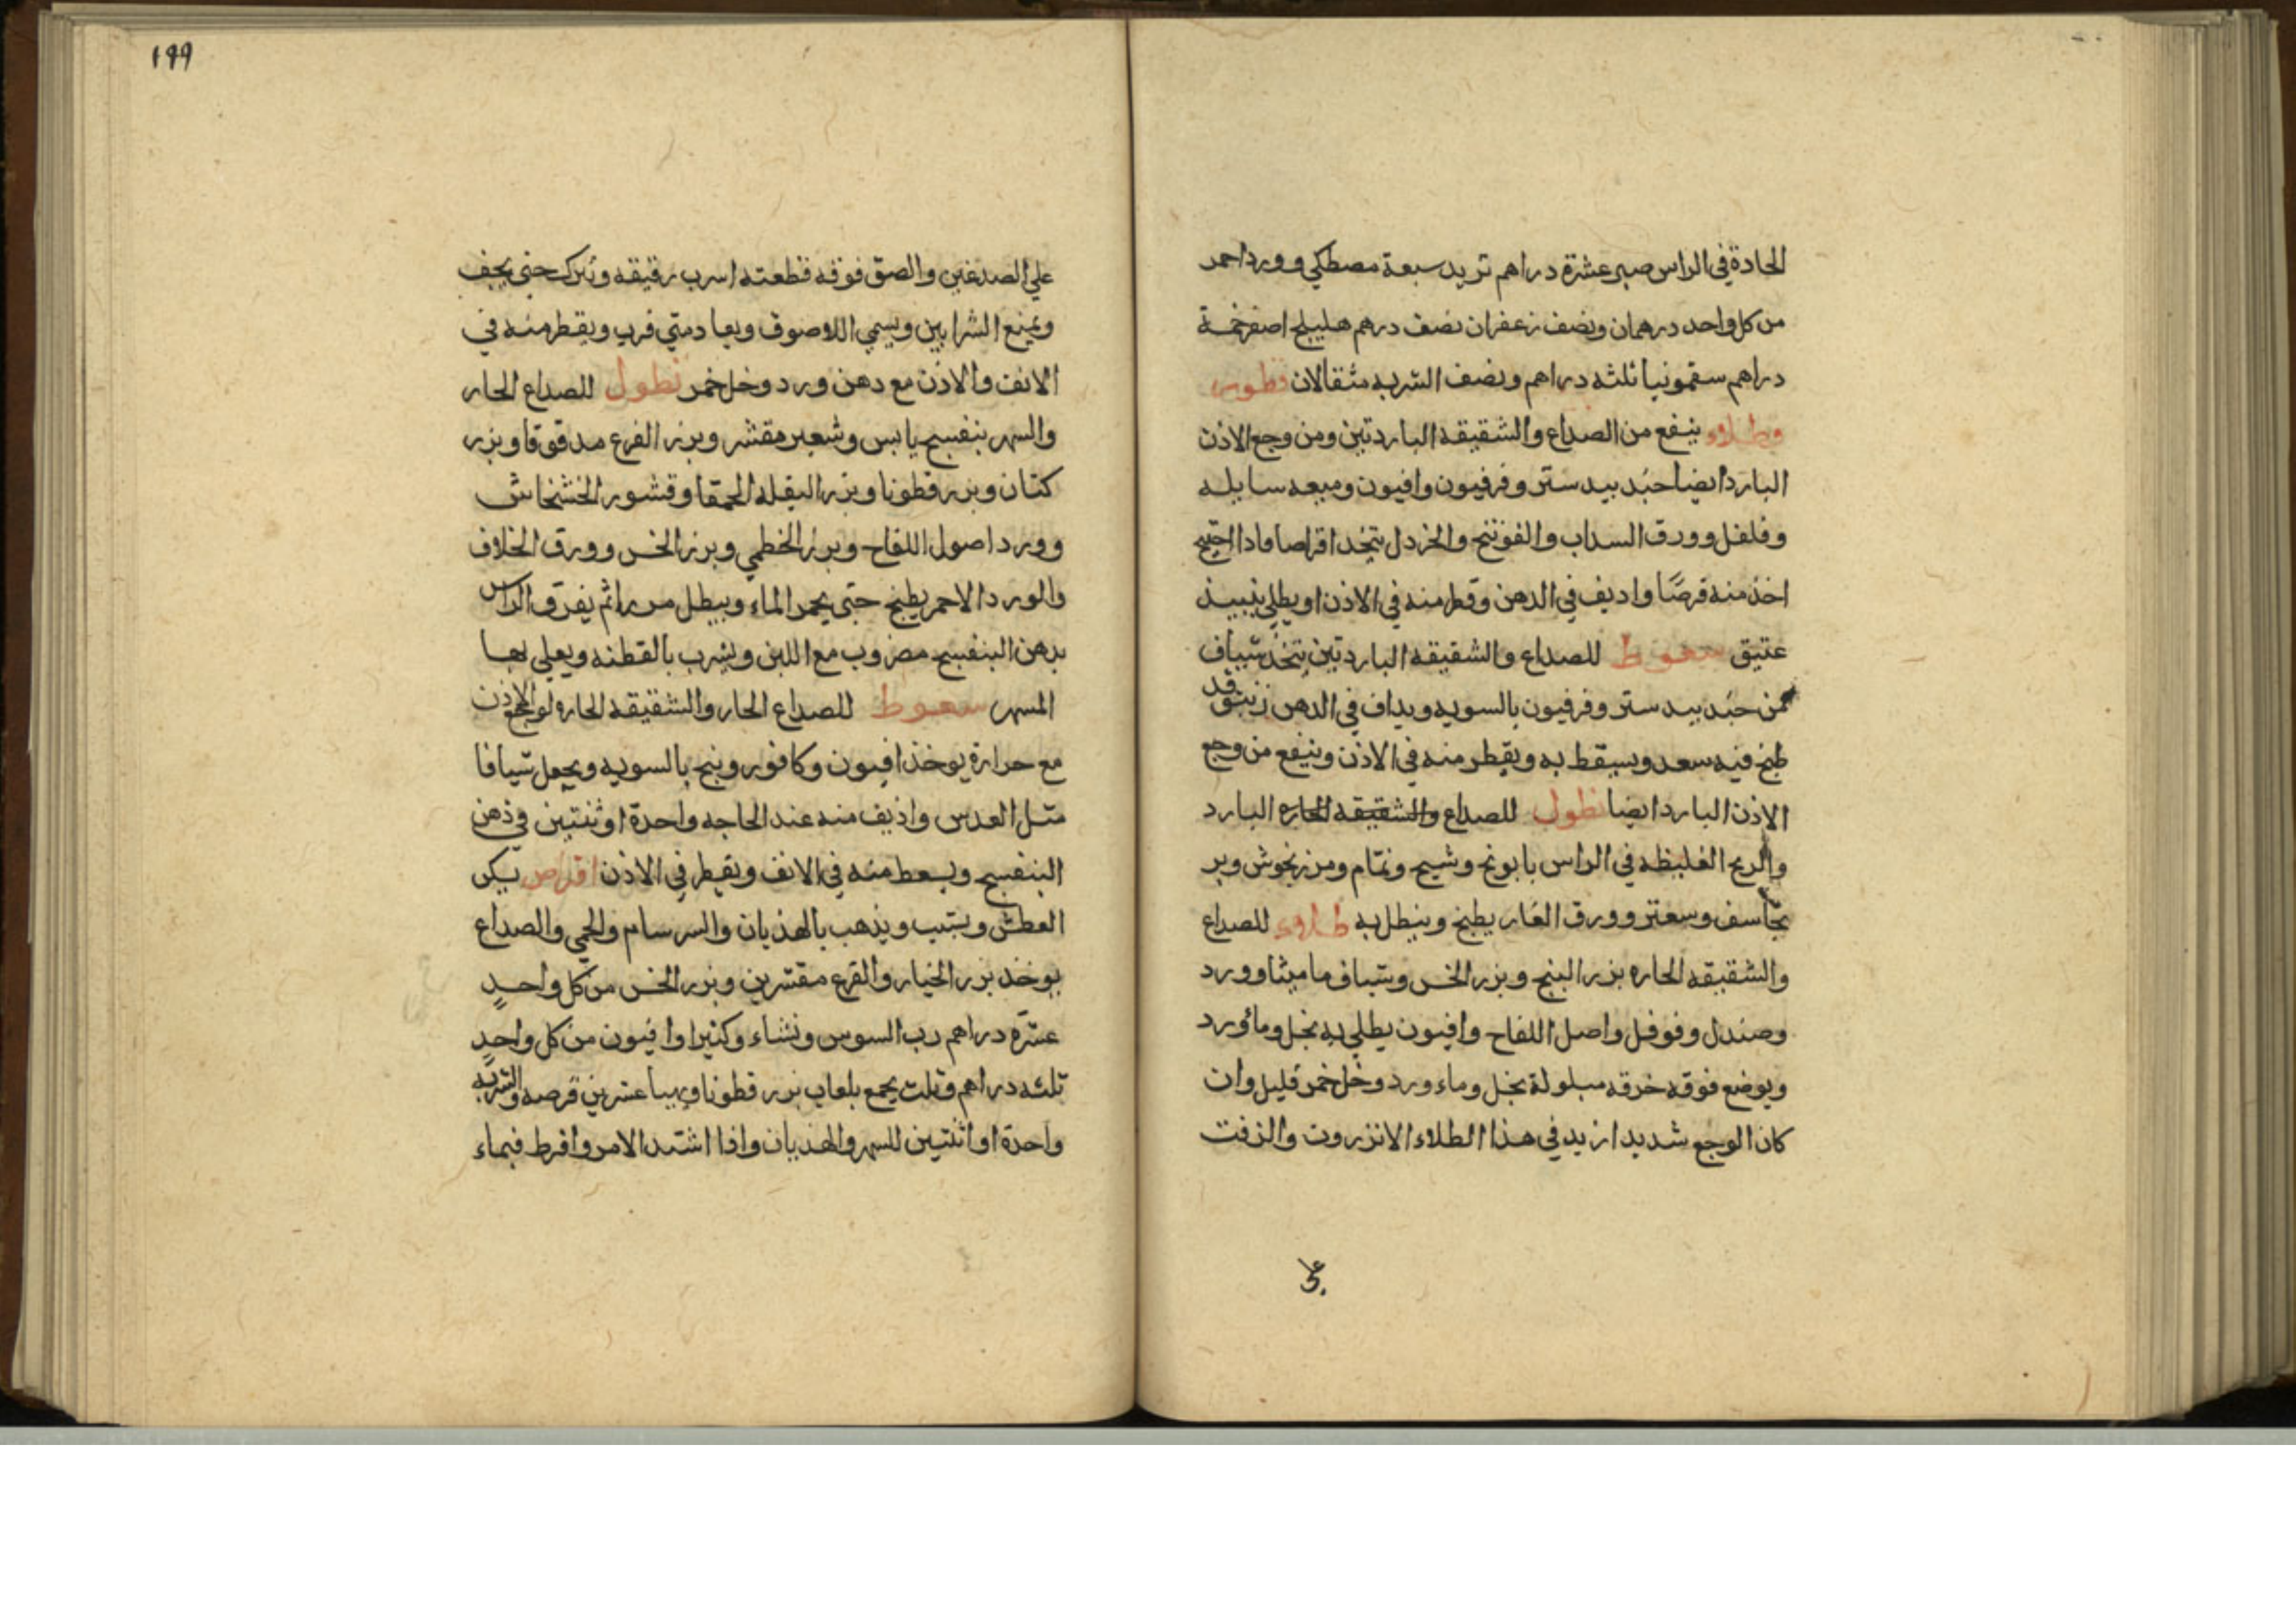 الحادة في الراس صبر عشرة دراهم تربد سبعة مصطكي وورد احمر
من كل واحد درهمان ونصف زعفران نصف درهم هليلج اصفر خمسة
دراهم سقمونيا ثلثه دراهم ونصف الشربه مثقالان قطوس
وطلاء ينفع من الصداع والشقيقه الباردتين ومن وجع الاذن
البارد ايضا جند بيد ستر وفرفيون وافيون وميعه سايله
وفلفل وورق السداب والفوتنج والخردل يتخد اقراصا فادا احتيج
اخذ منه قرصًا واديف في الدهن وقطر منه في الاذن او يطلي بنبيد
عتيق سعوط للصداع والشقيقه الباردتين يتخذ شياف
من جند بيد ستر وفرفيون بالسويه ويداف في الدهن زنبق قد
طبخ فيه سعد ويسقط به ويقطر منه في الاذن وينفع من وجع
الاذن البارد ايضا نطول للصداع والشقيقه الحاره البارد
والريح الغليظه في الراس بابونج وشيح ونمام ومرزنجوش وبر
نجاسف وسعتر وورق الغار يطبخ وينطل به طلاء للصداع
والشقيقه الحاره بزر البنج وبزر الخس وشياف ماميثا وورد
وصندل وفوفل واصل اللفاح وافيون يطلي به بخل وماورد
ويوضع فوقه خرقه مبلولة بخل وماء ورد وخل خمر قليل وان
كان الوجع شديدا زيد في هذا الطلاء الانزروت والزفت
علي
١٩٩
علي الصدغين والصق فوقه قطعته اسرب رقيقه وترك حتي يجف
ويمنع الشرابين ويسمي اللاصوق ويعاد متي قرب ويقطر منه في
الانف والاذن مع دهن ورد وخل خمر نطول للصداع الحار
والسهر بنفسج يابس وشعير مقشر وبزر القرع مدقوقا وبزر
كتان وبزر قطونا وبزر البقله الحمقا وقشور الخشخاش
وورد اصول اللفاح وبزر الخطمي وبزر الخس وورق الخلاف
والورد الاحمر يطبخ حتي يحمر الماء وينطل مرارا ثم يفرق الراس
بدهن البنفسج مضروب مع اللبن ويشرب بالقطنه ويعلي بها
المسهر سعوط للصداع الحار والشقيقه الحاره لوجع الاذن
مع حرارة يوخذ افيون وكافور وبنج بالسويه ويجعل شيافا
مثل العدس واذيف منه عند الحاجه واحدة او ثنتين في ذهن
البنفسج ويسعط منه في الانف ويقطر في الاذن اقراص يسكن
العطش ويسبت ويذهب بالهذيان والسرسام والحمي والصداع
يوخذ بزر الخيار والقرع مقشرين وبزر الخس من كل واحدٍ
عشرة دراهم رب السوس ونشاء وكثيرا وافيون من كل واحدٍ
ثلثه دراهم وثلث يجمع بلعاب بزر قطونا عشرين قرصه والشربه
واحدة او اثنتين للسهر والهذيان واذا اشتد الامر وافرط فبماء